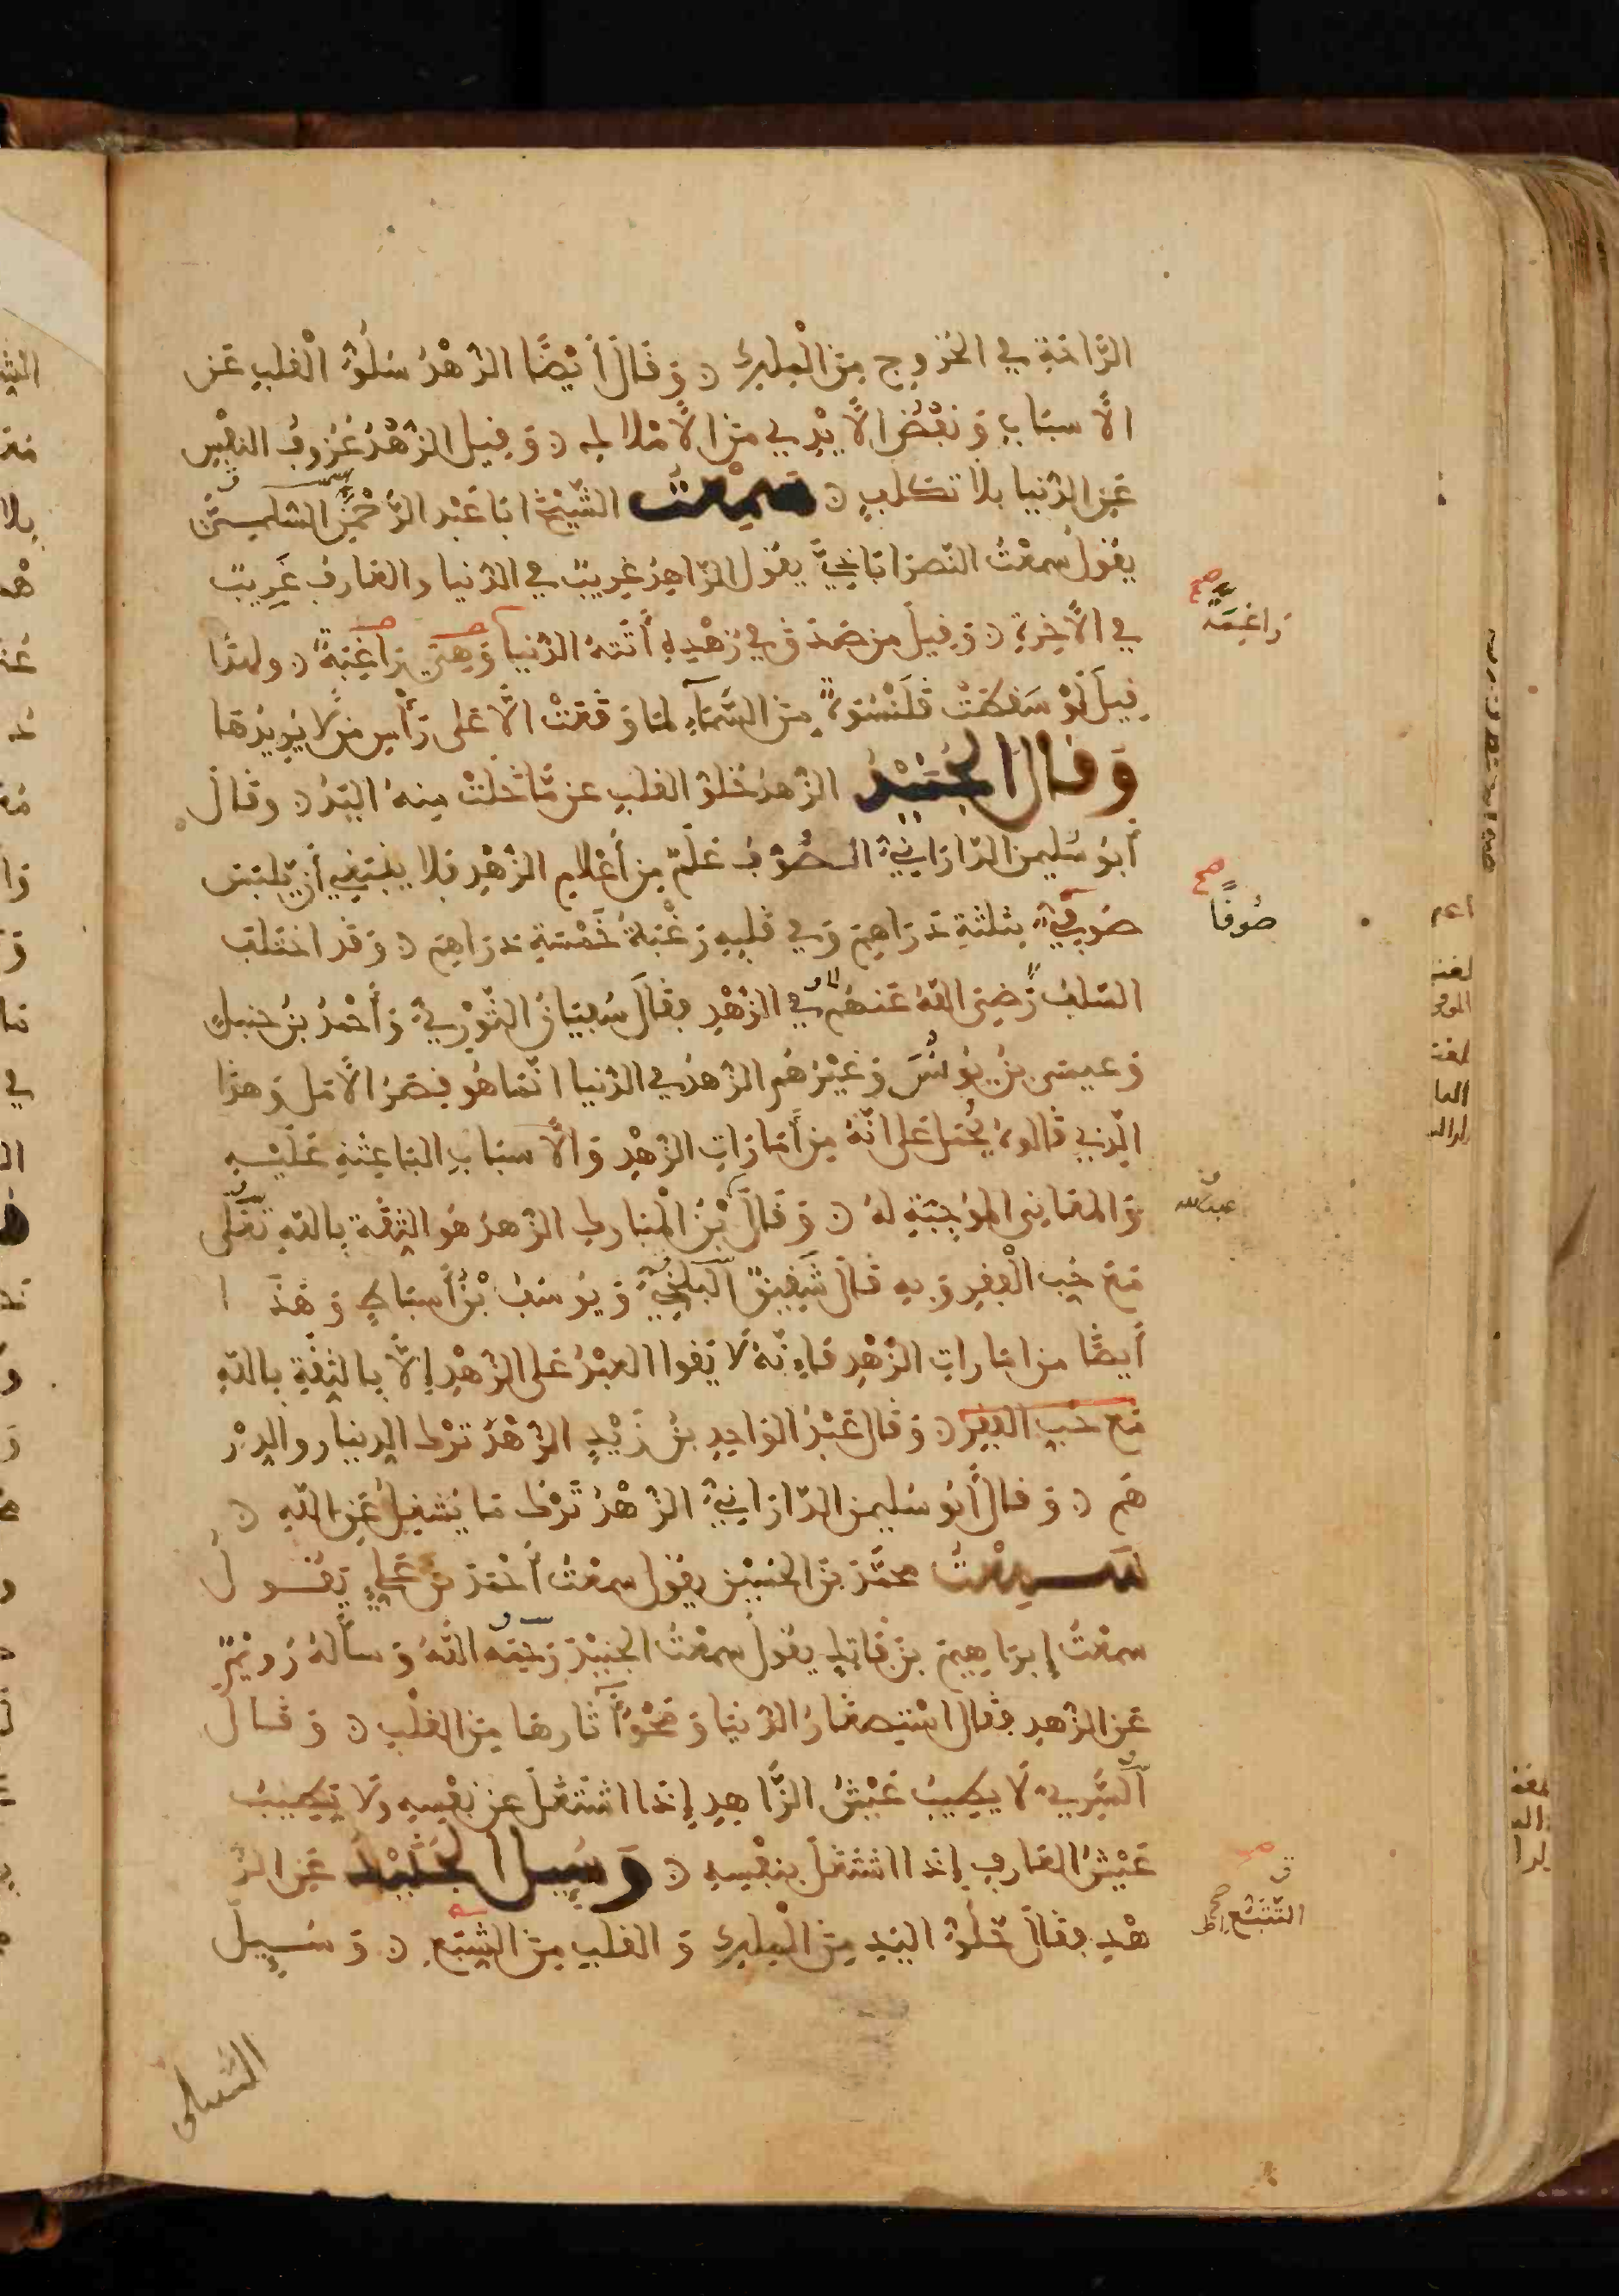 الرَّاحَةِ في الخُرُوجِ مِنَ الْمِلْكِ وَقَالَ أَيْضًا الزُّهْدُ سُلُوُّ الْقَلْبِ عَنِ
الأَسْبَابِ وَنَفْضُ الأَيْدِي مِنَ الأَمْلاكِ وَقِيلَ الزُّهْدُ عُزُوفُ النفْسِ
عَنِ الدُّنيا بلا تكلفٍ سَمِعْتُ الشَّيْخَ أبَا عَبْدِ الرَّحْمنِ السُّلَمِيَّ
يقُولُ سمعْتُ النصرَاباذِيَّ يقُولُ الزَّاهِدُ غرِيبٌ في الدُّنيا والعَارفُ غَرِيبٌ
في الآخِرَةِ وَقِيلَ من صَدَقَ في زُهْدِهِ أَتَتْهُ الدُّنيَا وَهِيَ رَاغِبَةٌ ولهذَا
قِيلَ لَوْ سَقَطَتْ قَلَنْسُوَةٌ مِنَ السَّمَاءِ لمَا وَقَعَتْ الاَّ عَلى رَأْسِ مَن لَّا يُرِيدُهَا
وَقَالَ الجُنَيْدُ الزُّهدُ خُلُوُّ القلبِ عن مَّا خَلَتْ مِنهُ اليَدُ وقَالَ
أَبُو سُليمن الدَّارَانِيُّ الصُّوْفُ عَلَمٌ مِن أَعْلامِ الزُّهْدِ فلا ينبَغِي أَن يَّلبَسَ
صُوفِيٌّ بثلثَةِ دَرَاهِمَ وَفي قلبِهِ رَغْبَةُ خَمْسَةِ دَرَاهِمَ وَقد اختَلَفَ
السَّلفُ رَضِيَ اللهُ عَنهُم في الزُّهْدِ فقَالَ سُفيَانُ الثَّوْرِيُّ وَأَحْمَدُ بنُ حنبلٍ
وَعيسَى بنُ يُونُسَ وَغيْرُهُم الزُّهدُ في الدُّنيا انَّمَا هُو قِصَرُ الأَمَلِ وَهذَا
الَّذِي قَالوهُ يُحْمَلُ عَلى انَّهُ مِن أَمَارَاتِ الزُّهْدِ وَالأَسبَابِ البَاعِثَةِ عَلَيْهِ
وَالمعَانِي المُوجِبَةِ لهُ وَقَالَ بْنُ الْمُبَارك الزُّهدُ هُو الثِّقَة بِاللهِ تَعَلى
مَعَ حُبِّ الْفقرِ وَبهِ قَالَ شَقِيقٌ الْبَلخِيُّ وَيُوسُفُ بْنُ أَسبَاطٍ وَهَذَا
أَيضًا من امَارَاتِ الزُّهْدِ فَإِنّهُ لَا يَقوا العَبْدُ عَلى الزُّهْدِ إِلاَّ بالثِّقَةِ بِاللهِ
مَع حُبِّ الفقرِ وَقَالَ عَبْدُ الوَاحِدِ بنُ زَيْدٍ الزُّهْدُ تَرْكُ الدِينار والدِرْ
هَم وَقالَ أَبُو سُليمن الدَّارَانِيُّ الزُّهْدُ تَرْكُ مَا يُشغِلُ عَنِ اللهِ
سَمِعْتُ محمَّدَ بنَ الحُسَيْنِ يقُول سمعْتُ أَحْمَدَ بنَ عَلِيٍّ يَقُولُ
سمعْتُ إبرَاهِيمَ بنَ فَاتِكٍ يقُولُ سمعْتُ الجُنَيْدَ رَحِمَهُ اللهُ وَسَأَلهُ رُوَيْمٌ
عَنِ الزُّهدِ فقَالَ اسْتِصغَارُ الدُّنيَا وَمَحْوُ آثارِهَا مِنَ القلْبِ وَقَالَ
السَّرِيُّ لَا يَطِيبُ عَيْشُ الزَّاهِدِ إِذا اشتَغَلَ عن نفْسِهِ وَلَا يَطِيبُ
عَيْشُ العَارِفِ إِذَا اشتَغَلَ بنفْسِهِ وَسُئِلَ الجُنَيْدُ عَنِ الزُّ
هْدِ فقَالَ خُلُوُّ اليَدِ مِنَ الْمِلْكِ وَ القلبِ مِنَ التَّتَبُّعِ وَسُئِلَ
رَاغِمَة
صح
صُوفًا
صح
عبد الله
التَّتَبُّع
صح
الشبلي